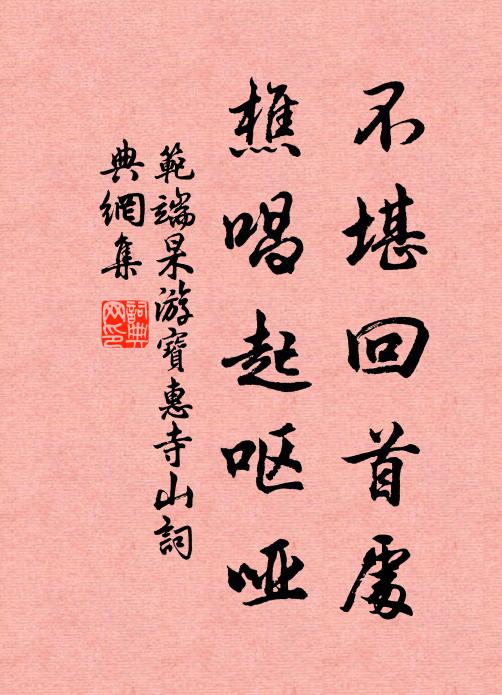 不堪回首處
樵唱起呕哑
範端杲游寶惠寺山詞
典網集
詞典
网印